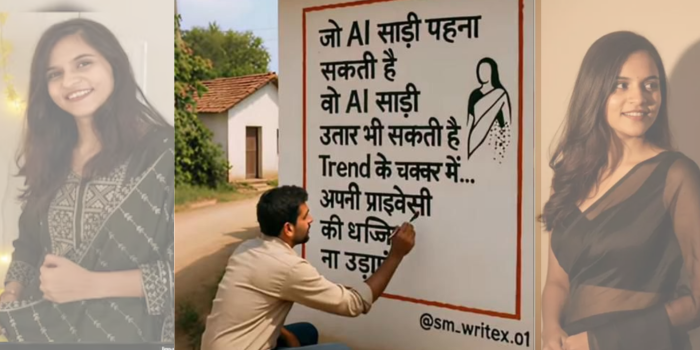 जो AI साड़ी पहना
सकती है
वो AI साड़ी
उतार भी सकती है
Trend के चक्कर में...
अपनी प्राइवेसी
की धज्जि
ना उड़ा
@sm_writex.01